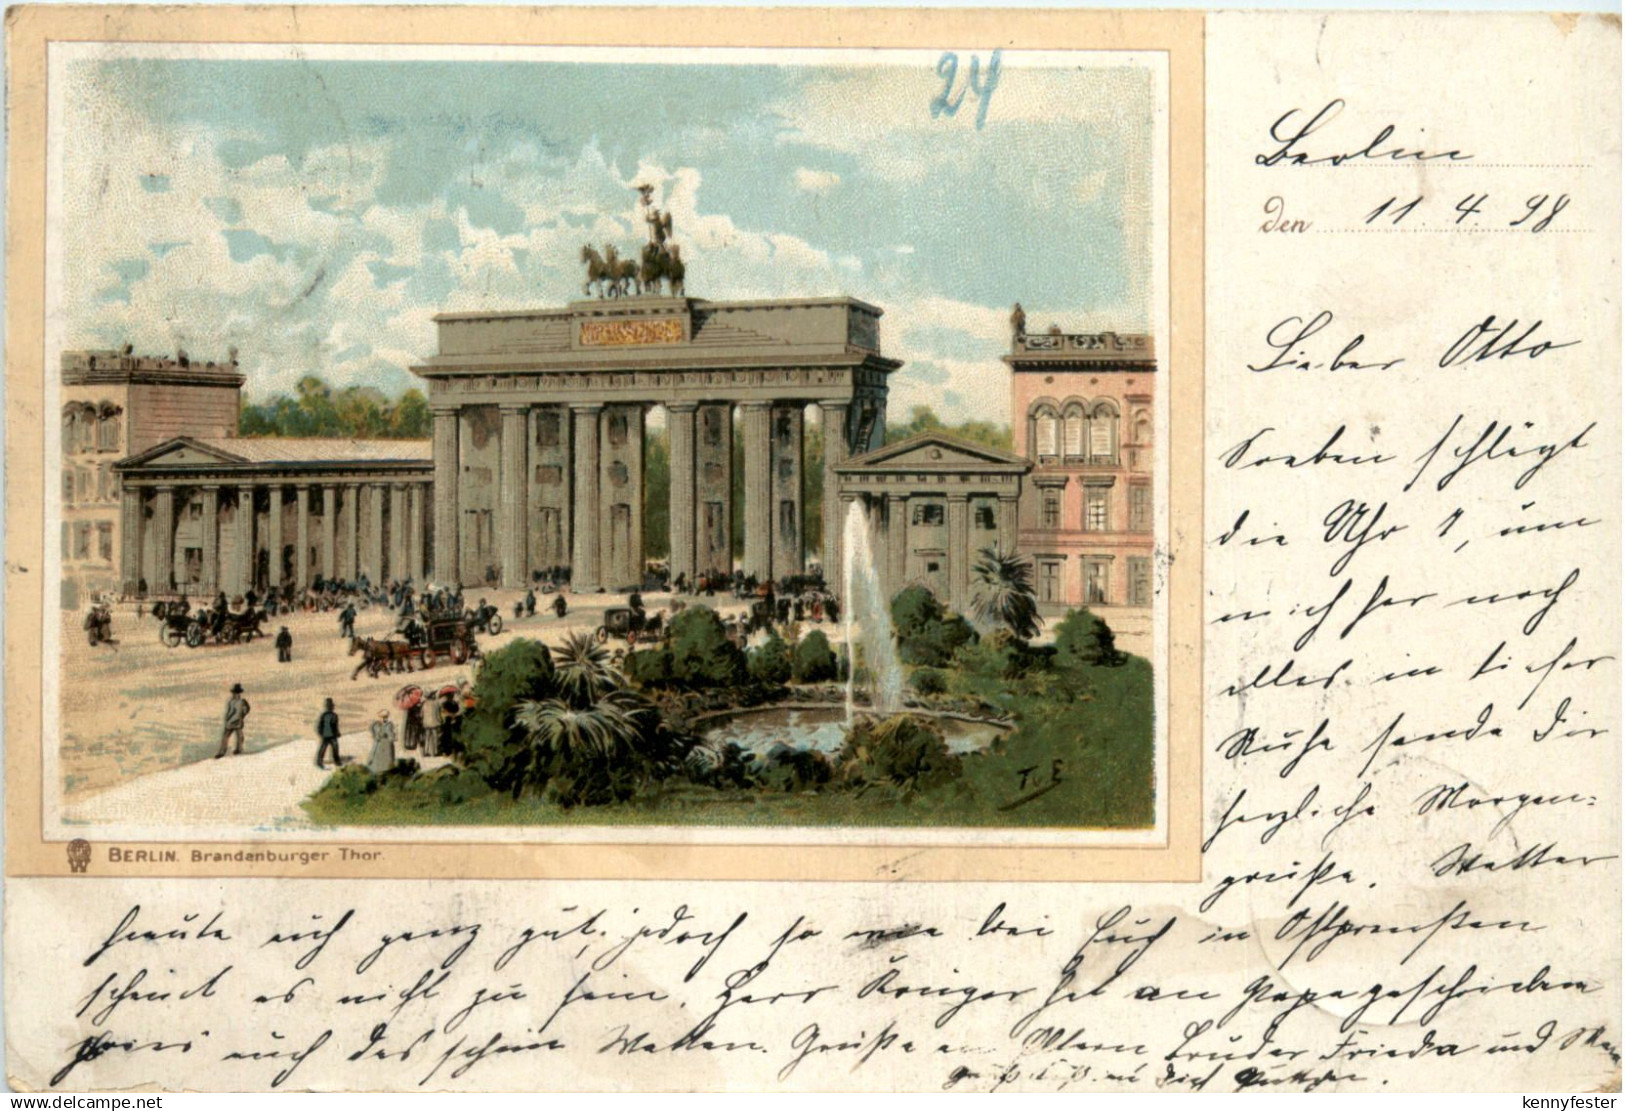 24
Berlin
den 11. 4. 98
Lieber Otto
Soeben schlägt
die Uhr 1, um
mich her noch
alles in tiefer
Ruhe sende Dir
herzliche Morgen=
grüße. Wetter
heute auch ganz gut, jedoch so wie bei Euch in Ostpreußen
scheint es nicht zu sein. Herr Krüger hat an Papa geschrieben
auch das schöne Wetter. Grüße Eltern Bruder Frieda und
Dich
T v E
BERLIN. Brandenburger Thor.
delcampe.net
kennyfester